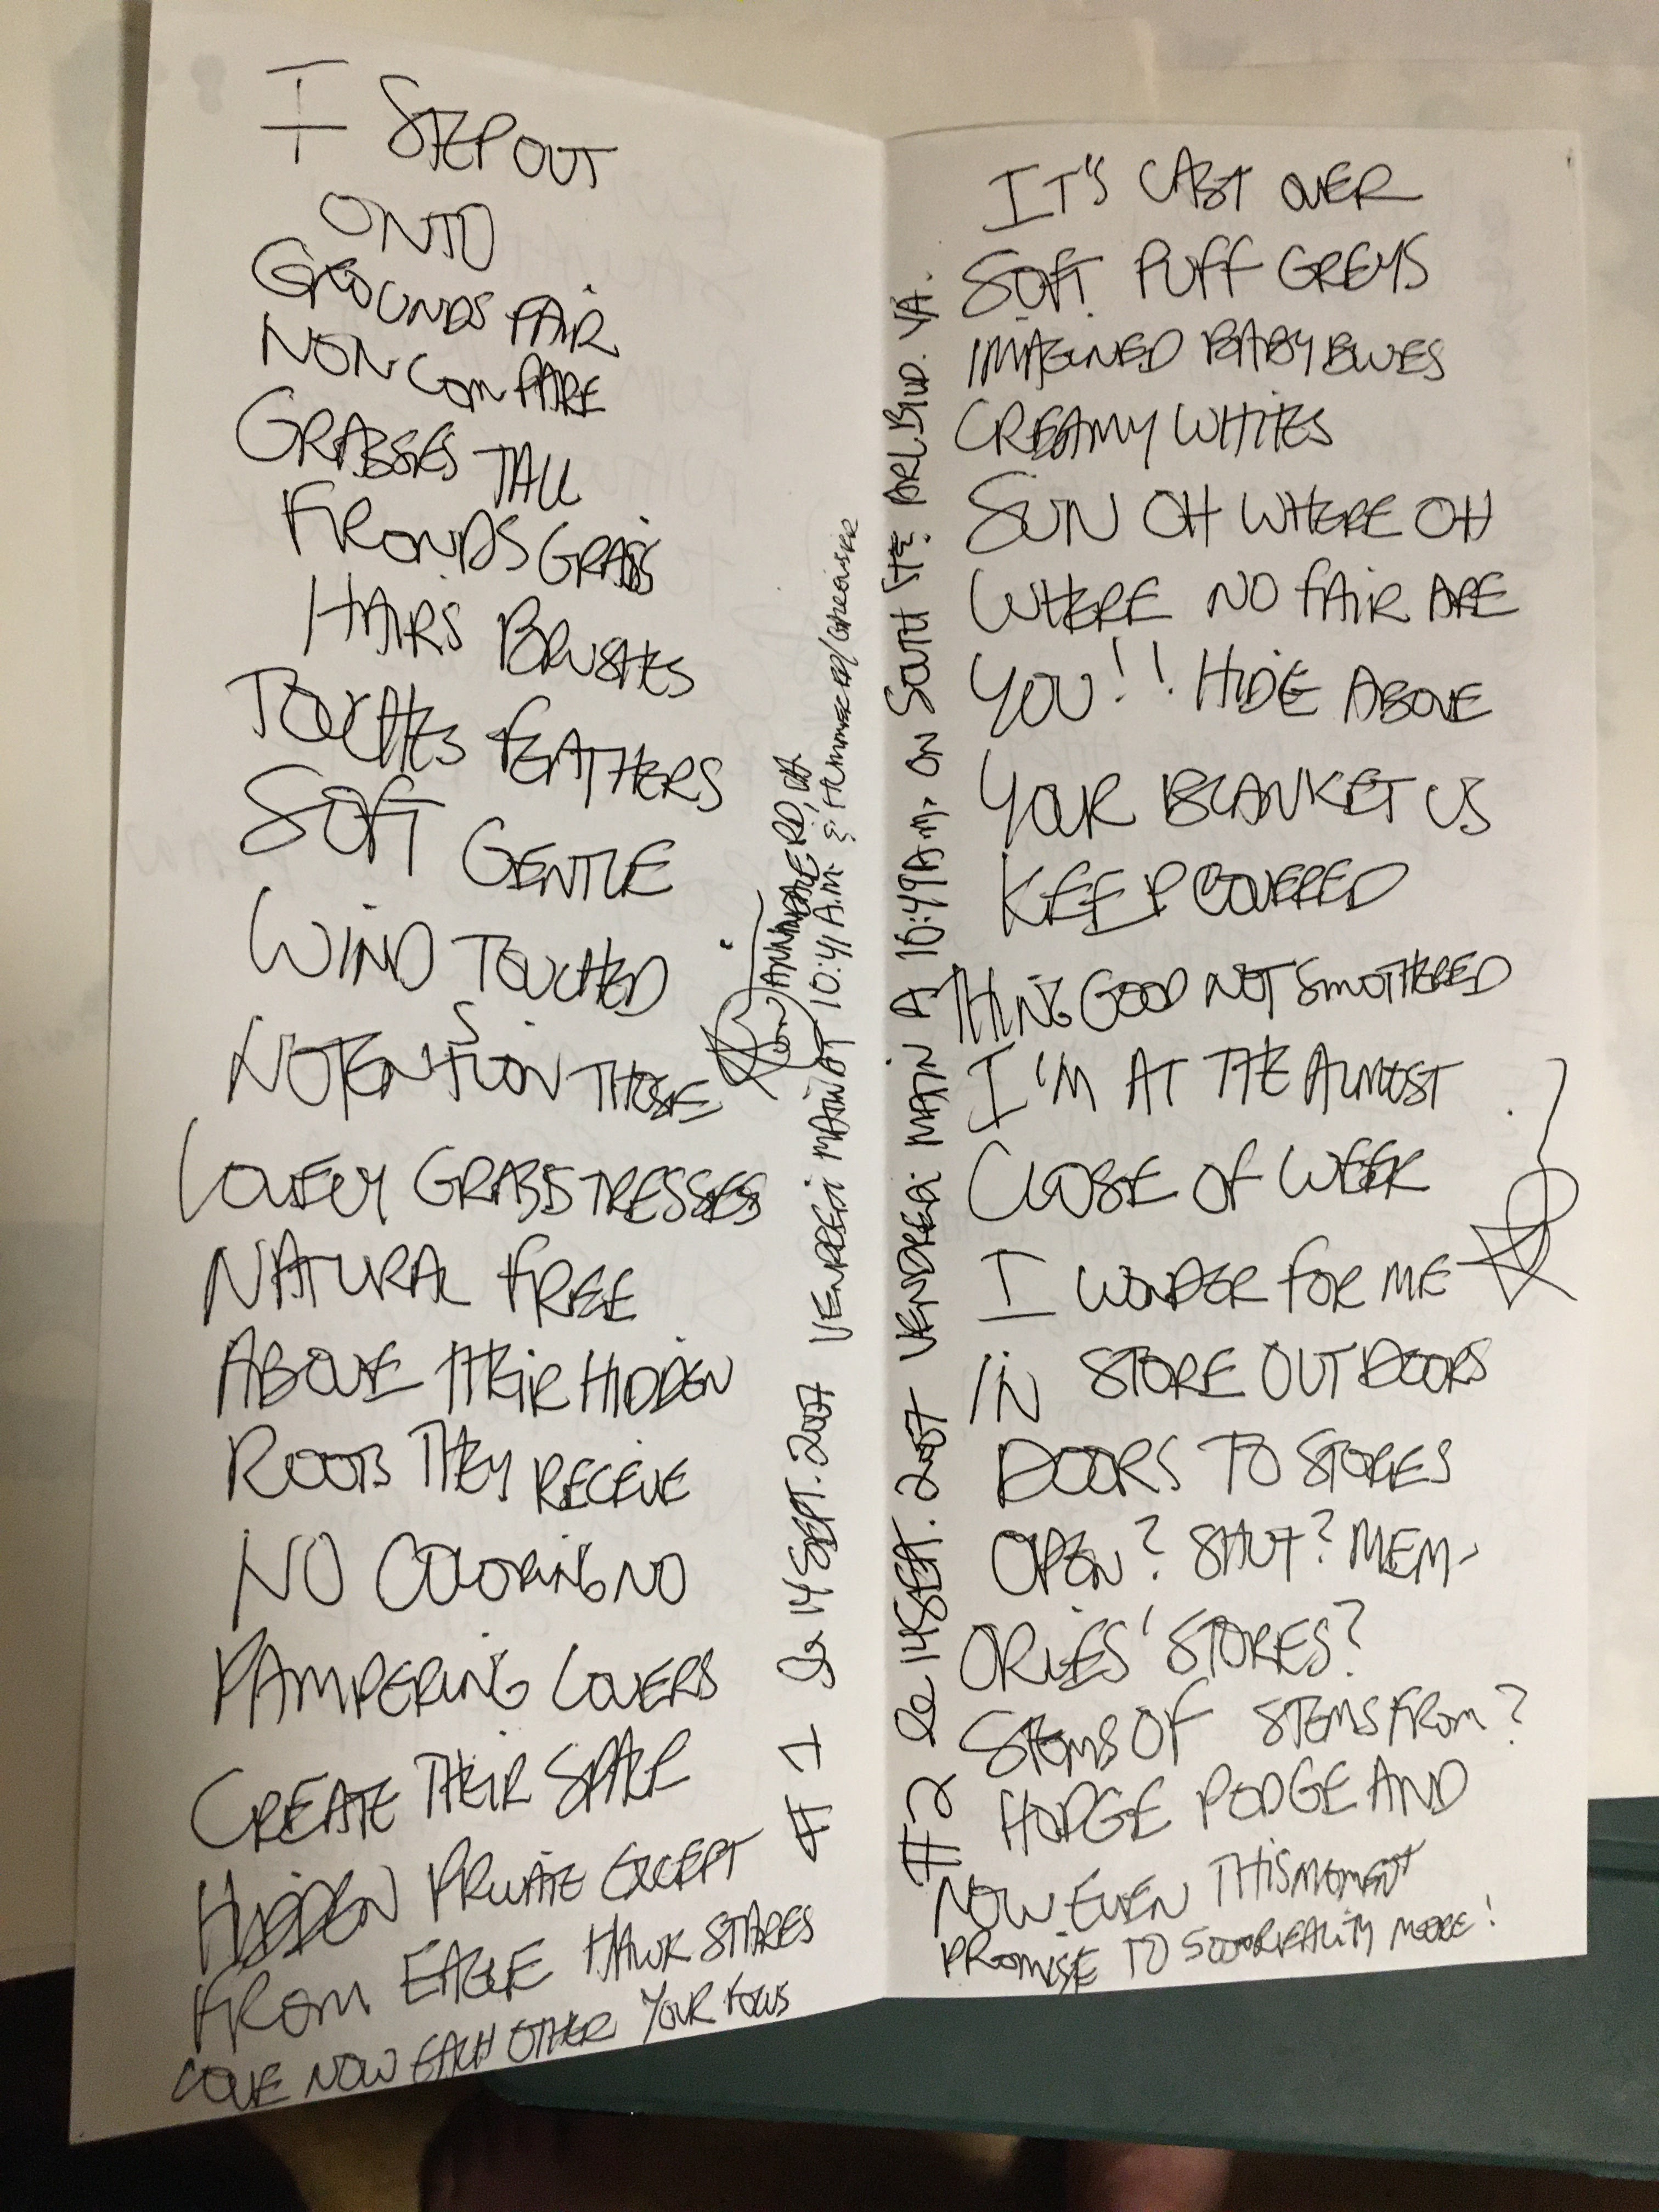 I STEP OUT
ONTO
GROUNDS FAIR
NON COMPARE
GRASSES TALL
FRONDS GRASS
HAIRS BRUSHES
TOUCHES FEATHERS
SOFT GENTLE
WIND TOUCHED
NOTENSION THOSE
LOVELY GRASSTRESSES
NATURAL FREE
ABOVE THEIR HIDDEN
ROOTS THEY RECEIVE
NO COLORING NO
PAMPERING LOVERS
CREATE THEIR SPACE
HIDDEN PRIVATE EXCEPT
FROM EAGLE HAWK STARES
LOVE NOW EACH OTHER YOUR FOCUS
#1 Le 14 SEPT. 2007 VENDREDI MATIN AT 10:41 A.M. &
ON ANNANDALE RD, VA
IT'S CAST OVER
SOFT PUFF GREYS
IMAGINED BABY BLUES
CREAMY WHITES
SUN OH WHERE OH
WHERE NO FAIR ARE
YOU!! HIDE ABOVE
YOUR BLANKET US
KEEP COVERED
THING GOOD NOT SMOTHERED
I'M AT THE ALMOST
CLOSE OF WEEK
I WONDER FOR ME
IN STORE OUTDOORS
DOORS TO STORES
OPEN? SHUT? MEM-
ORIES' STORES?
STEMS OF STEMS FROM?
HODGE PODGE AND
NOW EVEN THIS MOMENT
PROMISE TO SOOOREALITY MORE!
#2 Le 14 SEPT. 2007 VENDREDI MATIN A 10:49 A.M. ON SOUTH ARL. BLVD. VA.